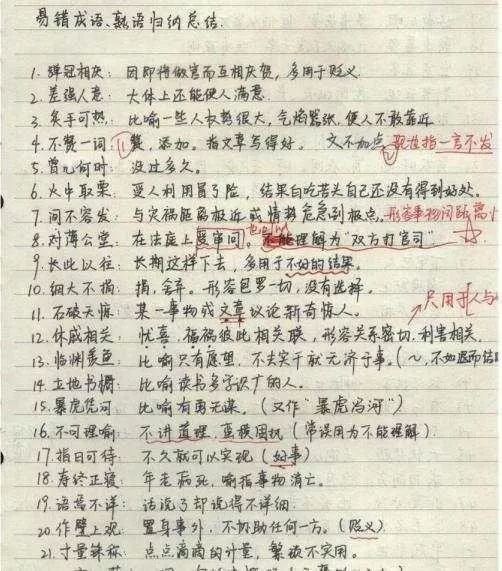 易错成语、熟语归纳总结.
1. 弹冠相庆: 因即将做官而互相庆贺, 多用于贬义.
2. 差强人意: 大体上还能使人满意.
3. 炙手可热: 比喻一些人权势很大, 气焰嚣张, 使人不敢靠近
4. 不赞一词: 1. 赞, 添加。指文章写得好。 文不加点 现在指一言不发
5. 曾几何时: 没过多久。
6. 火中取栗: 受人利用冒了险, 结果白吃苦头自己还没有得到好处。
7. 间不容发: 与灾祸距离极近或情势危急到极点。形容事物间距离小
也可以
8. 对薄公堂: 在法庭上受审问。 理解为“双方打官司”
9. 长此以往: 长期这样下去, 多用于不好的结果。
10. 细大不捐: 捐, 弃。形容包罗一切, 没有选择。
只用于人与
11. 石破天惊: 某一事物或文章议论新奇惊人。
12. 休戚相关: 忧喜, 福祸彼此相关联, 形容关系密切, 利害相关.
13. 临渊羡鱼: 比喻只有愿望, 不去实干就无济于事。(～, 不如退而结
14. 立地书橱: 比喻读书多字识广的人。
15. 暴虎凭河: 比喻有勇无谋。(又作“暴虎冯河”)
16. 不可理喻: 不讲道理, 蛮横固执 (常误用为不能理解).
17. 指日可待: 不久就可以实现 (好事)
18. 寿终正寝: 年老病死, 喻指事物消亡。
19. 语焉不详: 话说了却说得不详细.
20. 作壁上观: 置身事外, 不协助任何一方。(贬义)
21. 寸量铢称: 点点滴滴的计量, 繁琐不实用。